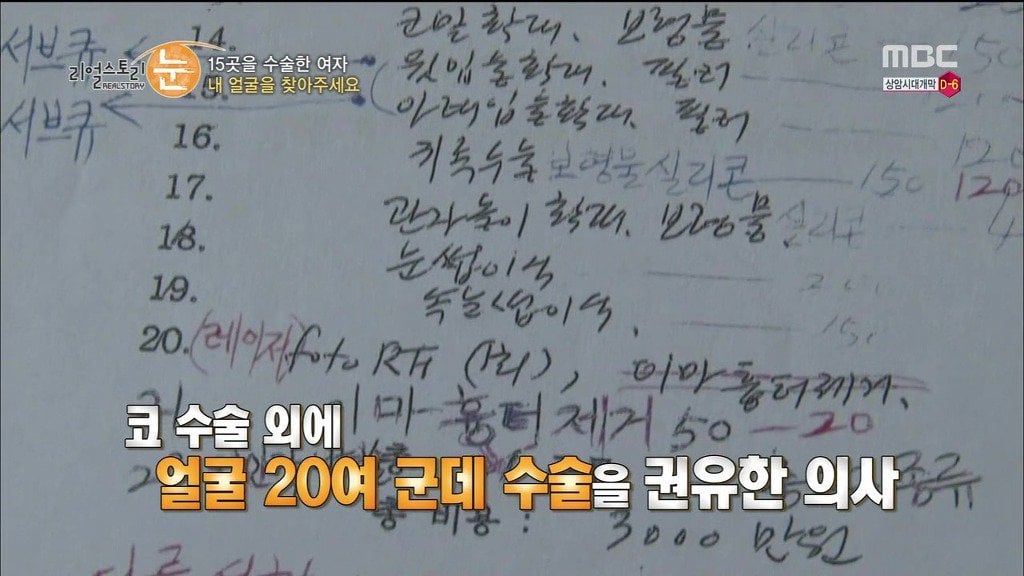 리얼스토리 눈
REALSTORY
15곳을 수술한 여자
내 얼굴을 찾아주세요
MBC
상암시대개막 D-6
서브큐
서브큐
14. 보형물 실리콘 150
윗입술확대. 필러
아래입술확대. 필러
16. 귀족수술 보형물 실리콘 150 120
17. 관자놀이 확대. 보형물 실리콘
18. 눈썹이식
19. 속눈썹이식. 150
20. (레이저) foto RF (1회), 이마 흉터제거.
21 이마 흉터제거 50 - 20
총 비용 : 3000 만원
코 수술 외에
얼굴 20여 군데 수술을 권유한 의사